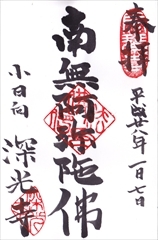 奉拝
平成十八年一月七日
南無阿弥陀佛
小日向
深光寺